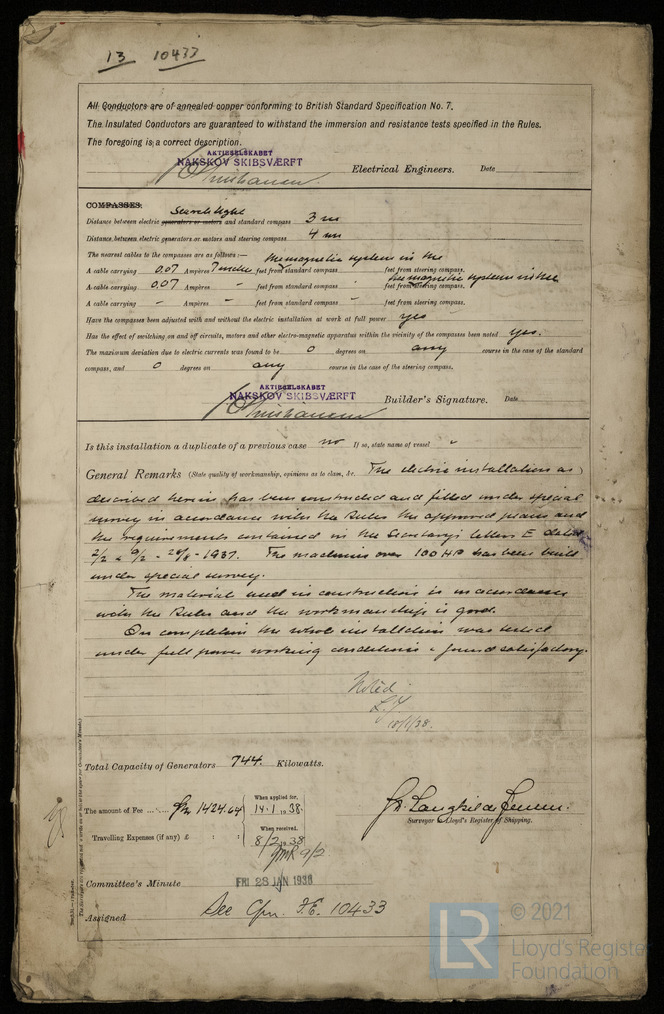 13 10433
All Conductors are of annealed copper conforming to British Standard Specification No. 7.
The Insulated Conductors are guaranteed to withstand the immersion and resistance tests specified in the Rules.
The foregoing is a correct description.
AKTIESELSKABET
NAKSKOV SKIBSVÆRFT
Electrical Engineers. Date
COMPASSES.
Searchlight
Distance between electric generators or motors and standard compass 3 m
Distance between electric generators or motors and steering compass 4 m
The nearest cables to the compasses are as follows:— the magnetic system in the
A cable carrying 0.07 Ampères Inside feet from standard compass feet from steering compass.
the magnetic system in the
A cable carrying 0.07 Ampères " feet from standard compass feet from steering compass.
A cable carrying - Ampères - feet from standard compass - feet from steering compass.
Have the compasses been adjusted with and without the electric installation at work at full power yes
Has the effect of switching on and off circuits, motors and other electro-magnetic apparatus within the vicinity of the compasses been noted yes.
The maximum deviation due to electric currents was found to be 0 degrees on any course in the case of the standard
compass, and 0 degrees on any course in the case of the steering compass.
AKTIESELSKABET
NAKSKOV SKIBSVÆRFT
Builder's Signature. Date
Is this installation a duplicate of a previous case no If so, state name of vessel "
General Remarks (State quality of workmanship, opinions as to class, &c. The electric installation as
described herein has been constructed and fitted under special
survey in accordance with the Rules the approved plans and
the requirements contained in the Secretary's letters E dated
2/2 - 9/2 - 20/8 - 1937. The machines over 100 HP has been built
under special survey.
The material used in construction is in accordance
with the Rules and the workmanship is good.
On completion the whole installation was tested
under full power working conditions & found satisfactory.
Noted
18/1/38.
Total Capacity of Generators 744. Kilowatts.
The amount of Fee 1424.64
When applied for,
14.1.1938.
Travelling Expenses (if any) £ : :
When received,
8/2 1938
9/2
Surveyor to Lloyd's Register of Shipping.
Committee's Minute FRI 28 JAN 1938
Assigned See F.E. 10433
© 2021
LR
Lloyd's Register
Foundation